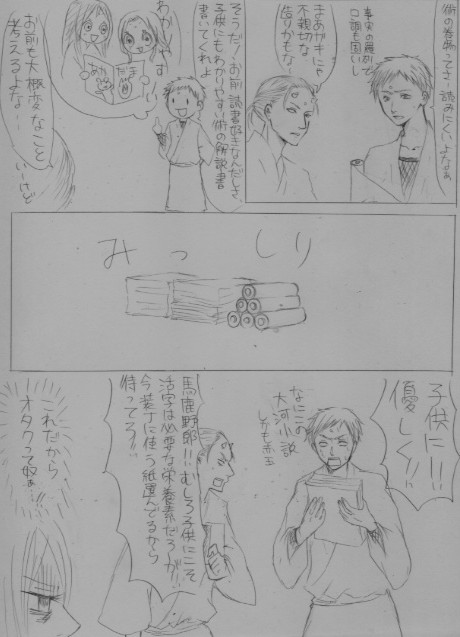 術の巻物ってさ 読みにくいよなぁ
事実の羅列で
口調も固いし
まあガキにゃ
不親切な
造りかもな…
そうだ！お前 読書好きなんだしさ
子供にもわかりやすい術の解説書
書いてくれよ
わかりやす
お前も大概変なこと
考えるよな…
いーけど
みっしり
子供に!!
優しく!!
なにこの大河小説
しかも赤玉
馬鹿野郎!!むしろ子供にこそ
活字は必要な栄養素だろが!!
今装丁に使う紙選んでるから
待ってろ!!
これだから
オタクって奴ぁ…!!